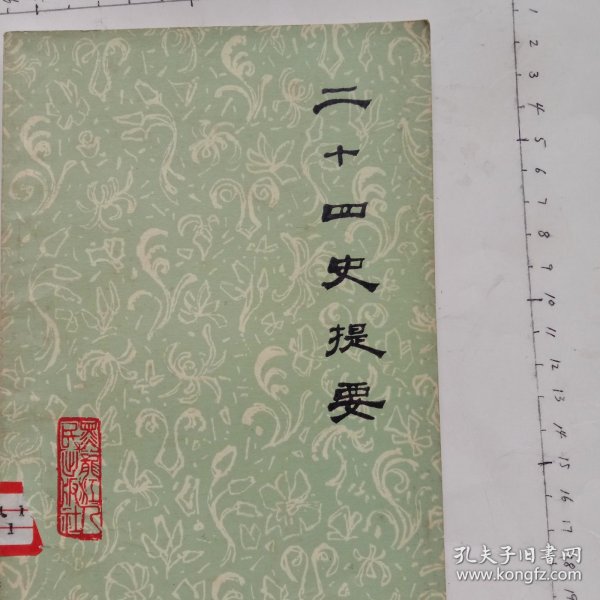 二十四史提要
黑龙江人
民出版社
1
2
3
4
5
6
7
8
9
10
11
12
13
14
15
16
17
18
19
孔夫子旧书网
www.kongfz.com